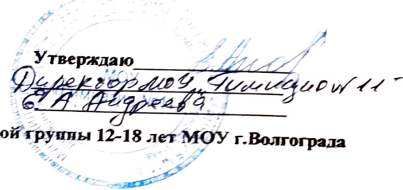 Утверждаю
Директор МОУ "Гимназия №11"
Е.А. Андреева
ой группы 12-18 лет МОУ г.Волгограда